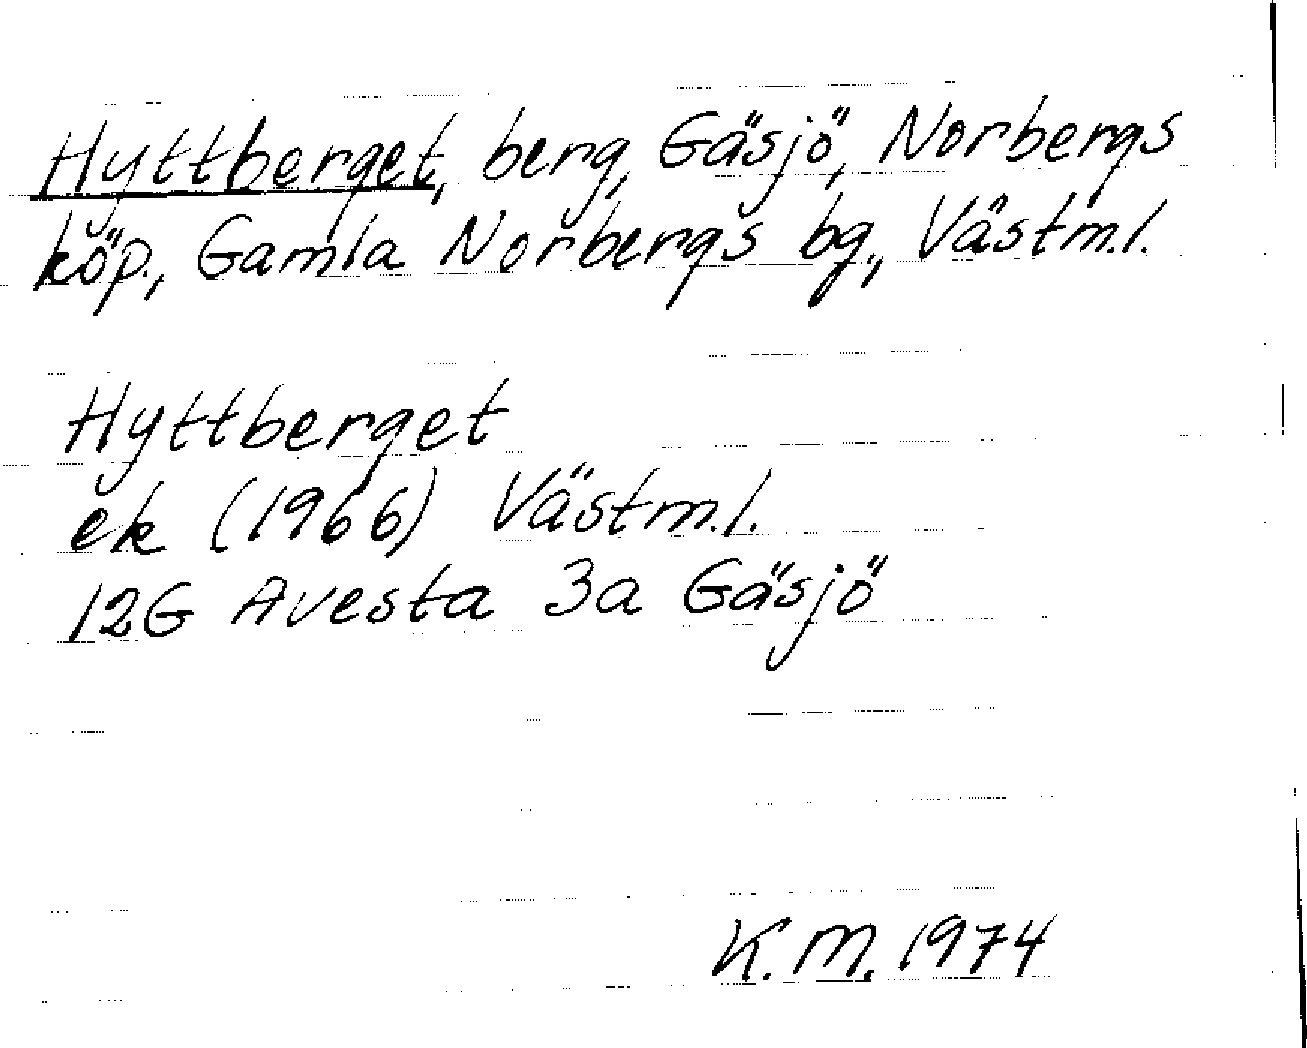 Hyttberget, berg, Gäsjö, Norbergs
köp., Gamla Norbergs bg., Västm.l.
Hyttberget
ek (1966) Västm.l.
12G Avesta 3a Gäsjö
K.M. 1974